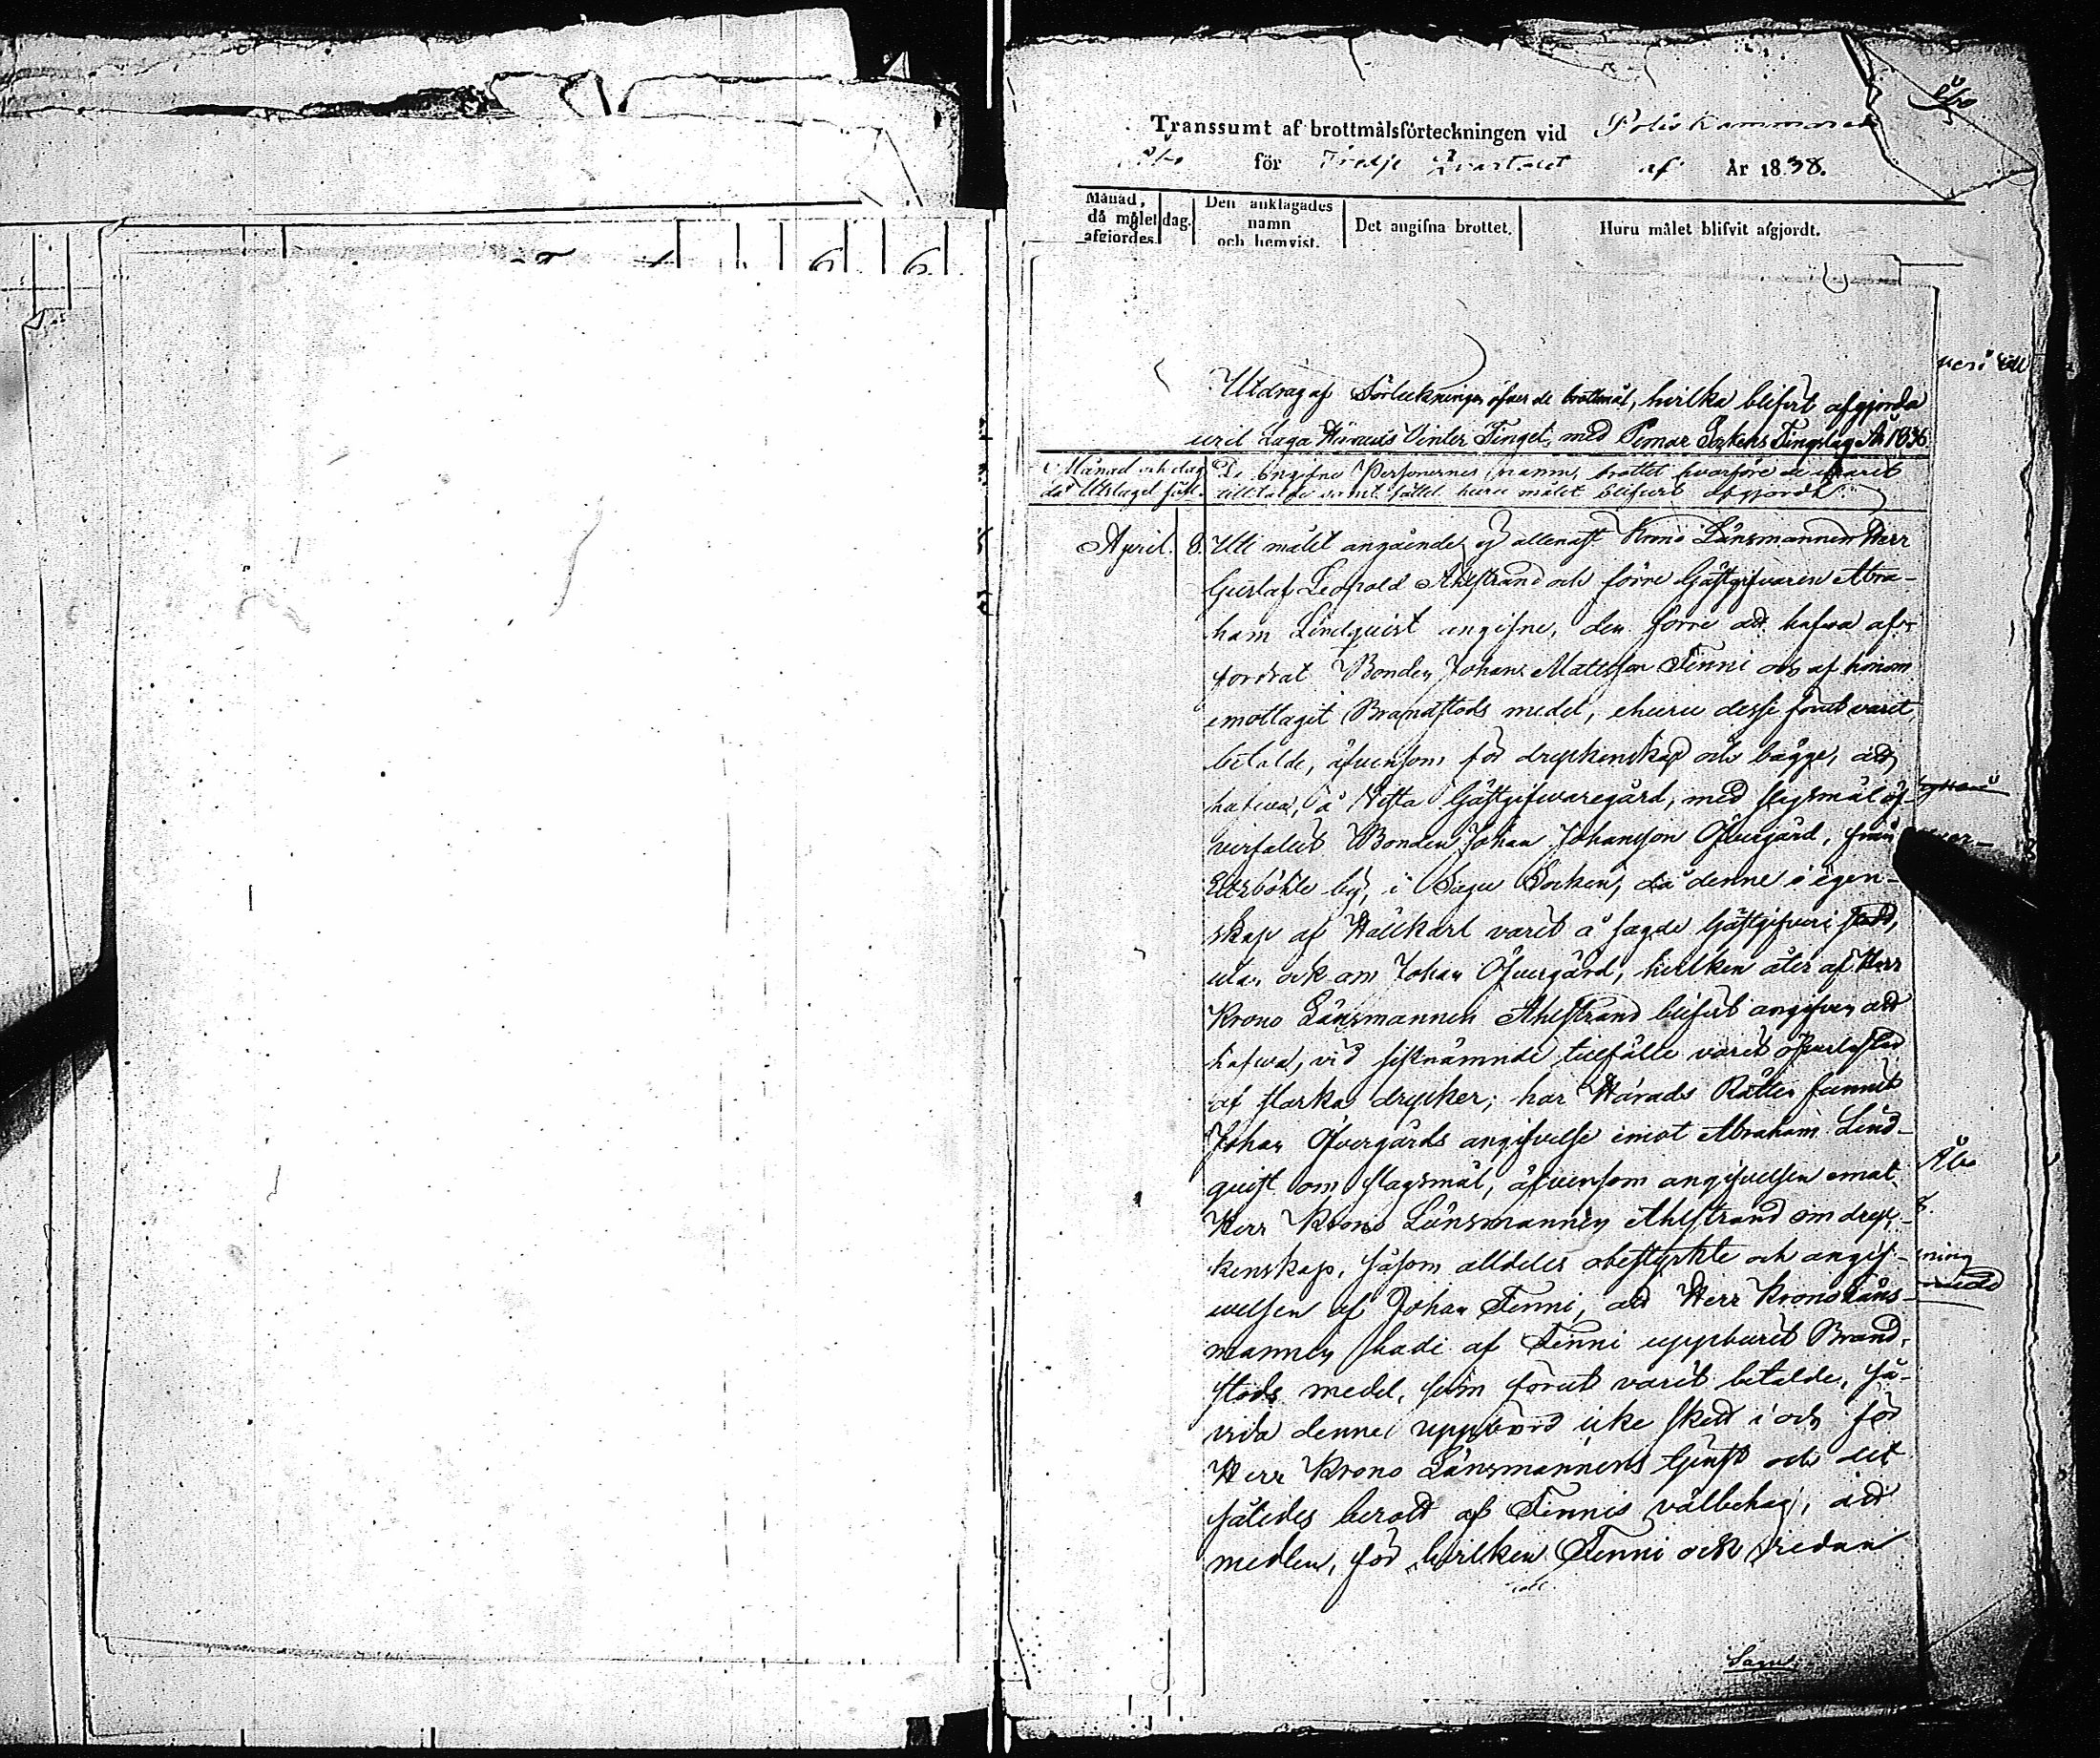 Åbo
Transsumt af brottmålsförteckningen vid Poliskammaren
Åbo för Tredje Qvartalet af År 1838.
Månad, då målet afgjordes. dag. Den anklagades namn och hemvist. Det angifna brottet. Huru målet blifvit afgjordt.
Utdrag af Förteckningen öfver de brottmål, hvilka blifvit afgjorda
uti Laga Vinter Tinget, med Pemar Sockens Tingslag År 1836
Månad och dag då Utslaget fäll. De Angifne Personernes namn, brottet hvarföre de varit
tilltalde samt sättet huru målet blifvit afgjordt.
April. 8. Uti målet angående ej allenast Krono Länsmannen Herr
Gustaf Leopold Ahlstrand och förre Gästgifvaren Abra-
ham Lindquist angifne, den förre att hafva af-
fordrat Bonden Johan Mattsson Tinni och af honom
emottagit Brandstods medel, ehuru desse förut varit
betalde, äfvensom för dryckenskap och bägge, att
hafva, å Vitta Gästgifvaregård, med slagsmål öf-
verfallit Bonden Johan Johansson Öfvergård, från
böhle by, i Sagu Socken, då denne i egen-
skap af Hållkarl varit å sagde Gästgifveri stadd,
utan ock om Johan Öfvergård, hvilken åter af Herr
Krono Länsmannen Ahlstrand blifvit angifven att
hafva, vid sistnämnde tillfälle varit öfverlastad
af starka drycker; har Härads Rätten funnit
Johan Öfvergårds angifvelse emot Abraham Lind-
quist om slagsmål, äfvensom angifvelsen emot
Herr Krono Länsmannen Ahlstrand om dryc-
kenskap, såsom alldeles obestyrkte och angif-
velsen af Johan Tinni, att Herr Krono Läns-
mannen hade af Tinni uppburit Brand-
stods medel, som förut varit betalde, så-
vida denne uppbörd icke skett i och för
Herr Krono Länsmannens tjenst och det
således berott af Tinnis välbehag, att
medlen, för hvilken Tinni ock redan
Åbo
ning